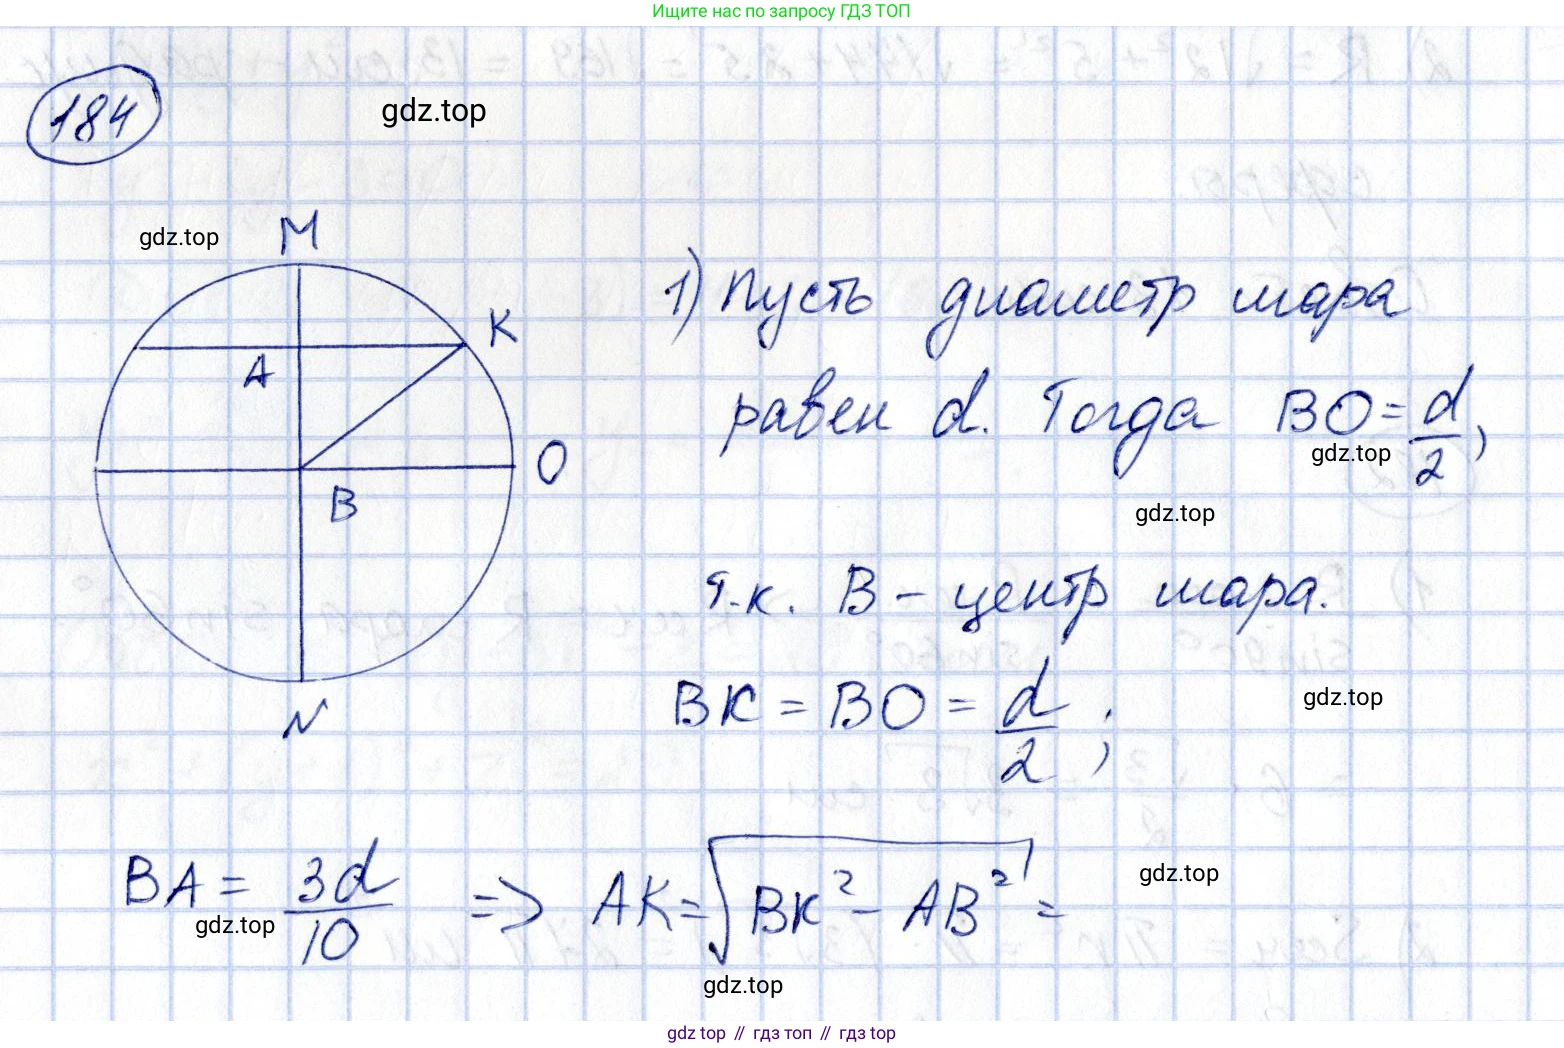 Ищите нас по запросу ГДЗ ТОП
184
gdz.top
gdz.top
M
K
A
O
B
N
1) Пусть диаметр шара
равен d. Тогда BO = d/2,
gdz.top
gdz.top
т.к. B - центр шара.
BK = BO = d/2;
gdz.top
BA = 3d/10 => AK = √(BK² - AB²) =
gdz.top
gdz.top
gdz.top
gdz top // гдз топ // гдз top